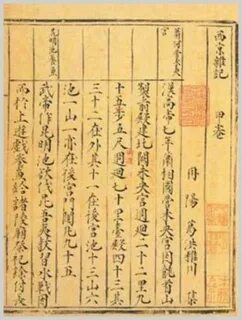 西京雜記 甲卷
丹陽 葛洪稚川 集
蕭何營未央宮
漢高帝七年蕭相國營未央宮因龍首山
製前殿建北闕未央宮週迴二十二里九
十五步五尺週迴七十里臺殿四十三其
三十二在外其十一在後宮池十三山六
池一山一亦在後宮門闥凡九十五
昆明池養魚
武帝作昆明池欲伐昆吾夷教習水戰因
而於上遊戲養魚魚給諸陵廟祭祀餘付長